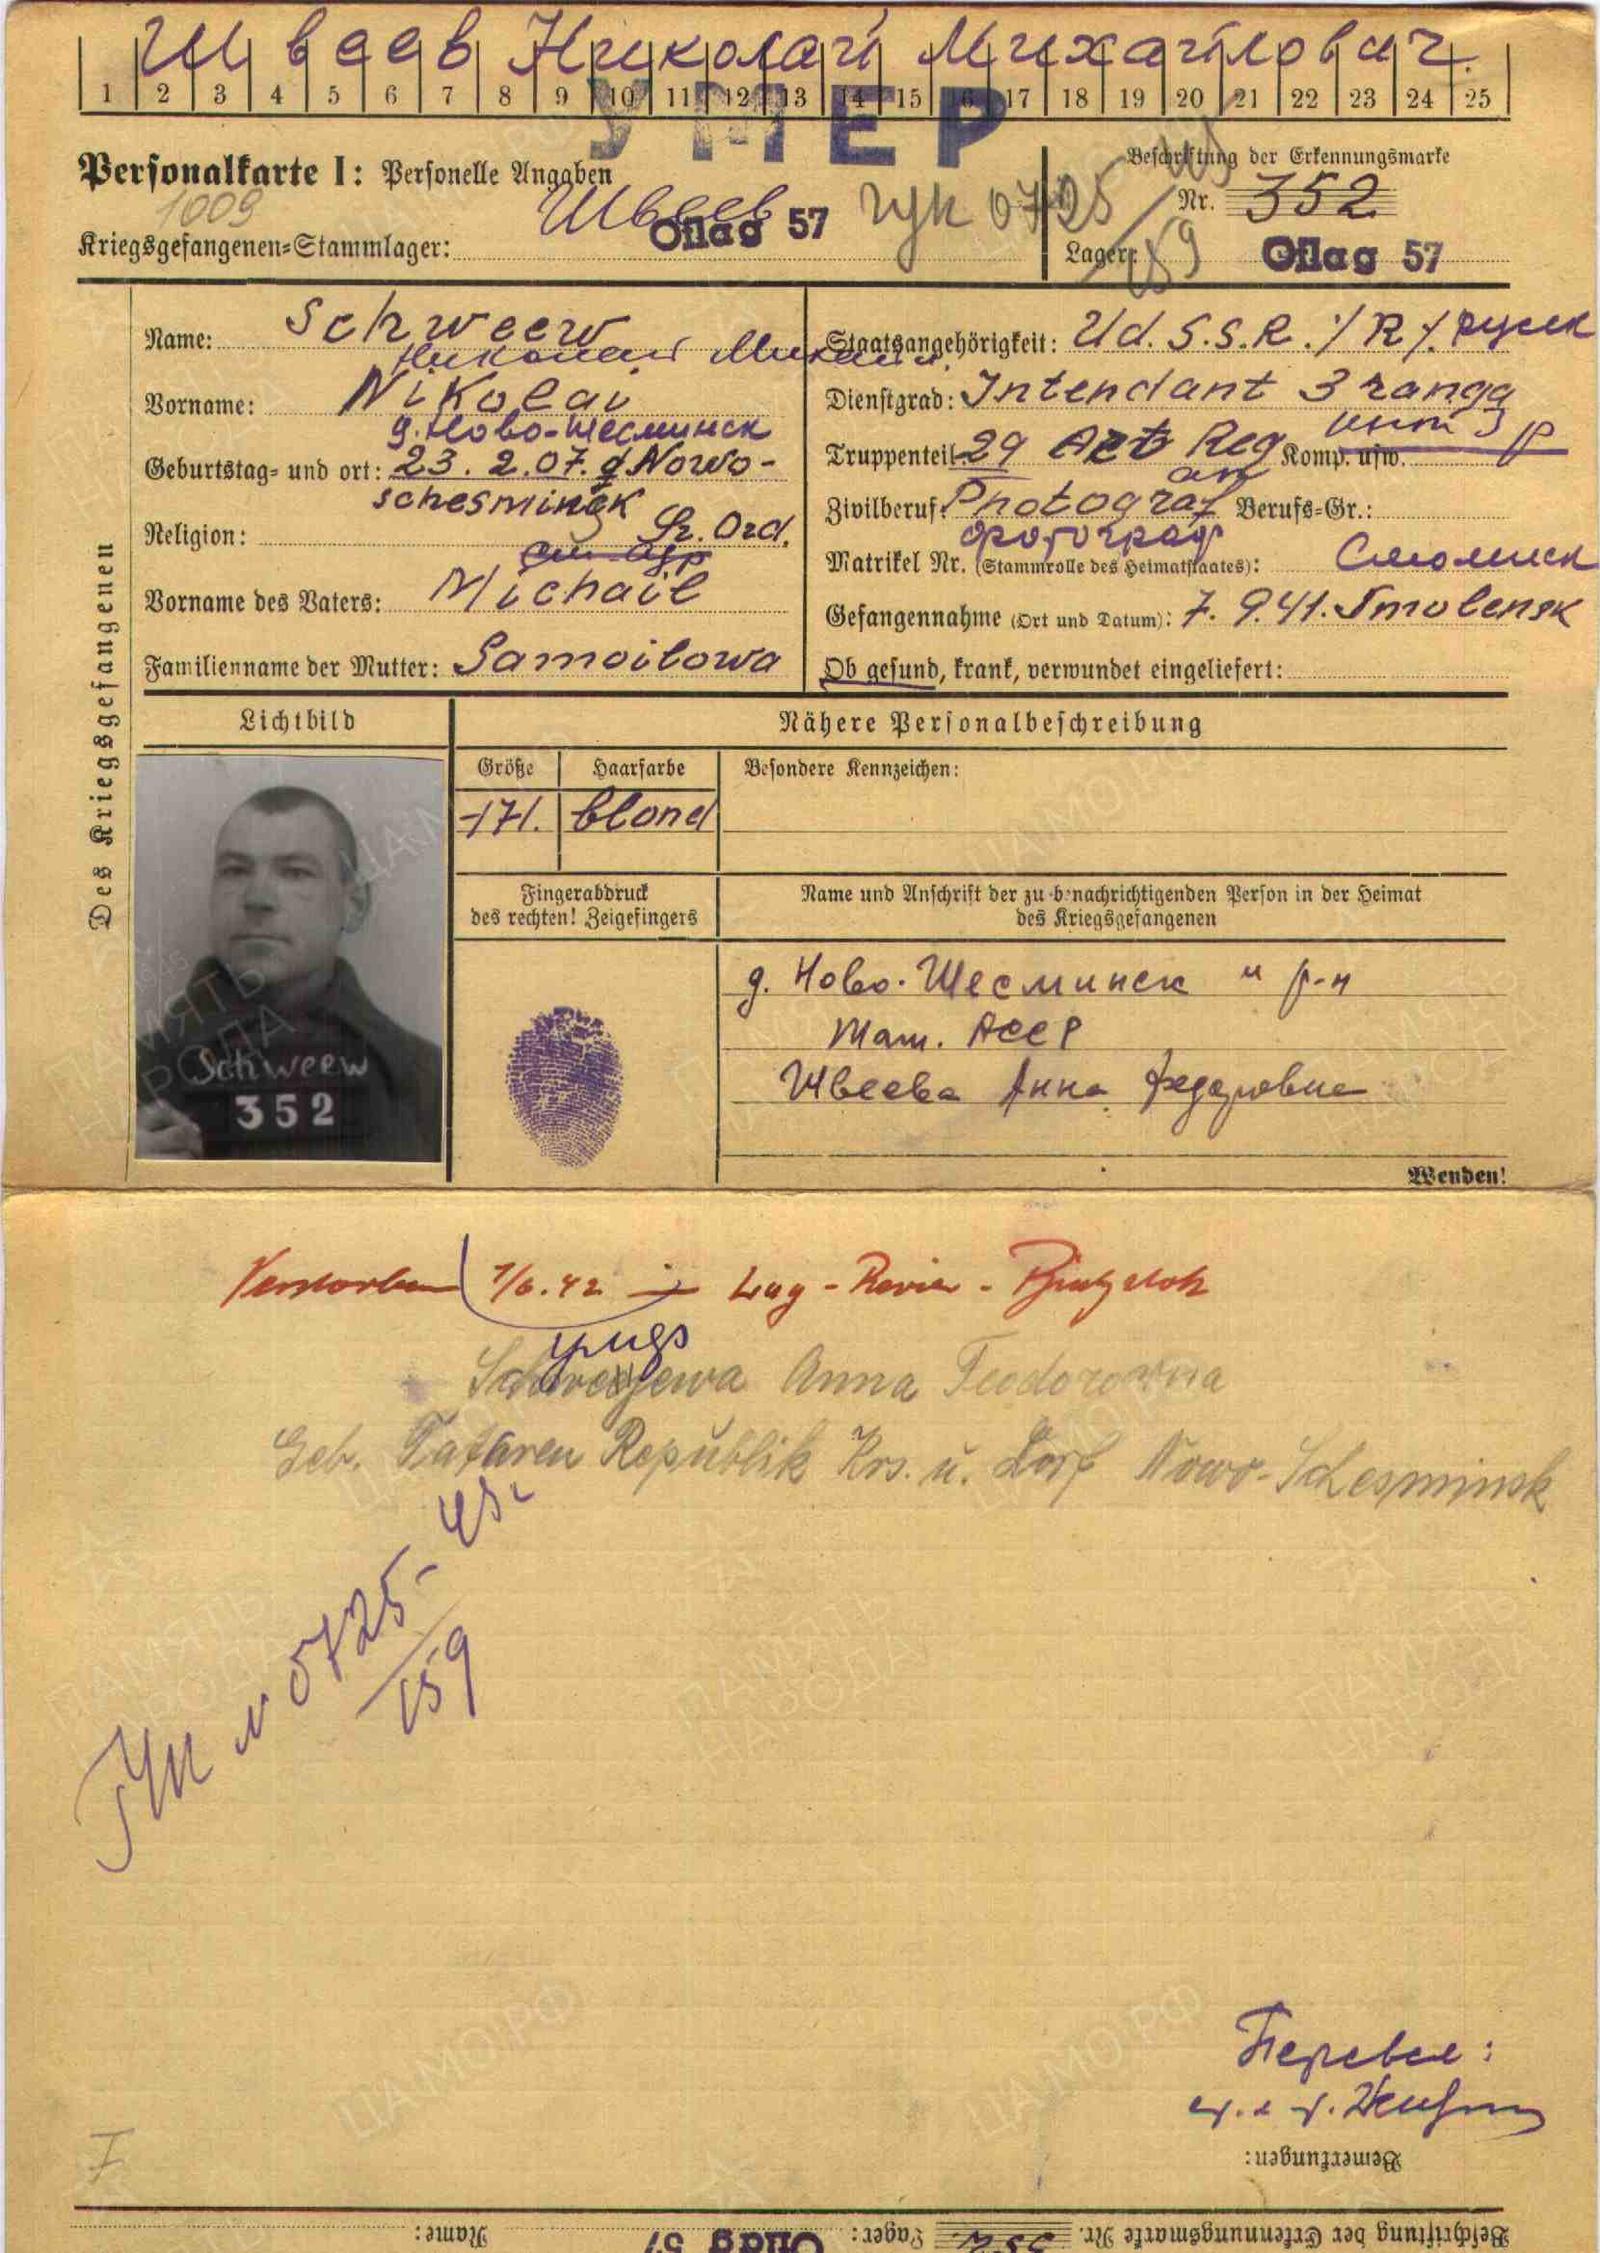 Швеев Николай Михайлович.
1 2 3 4 5 6 7 8 9 10 11 12 13 14 15 16 17 18 19 20 21 22 23 24 25
УМЕР
Personalkarte I: Personelle Angaben
Beschriftung der Erkennungsmarke
1009
Швеев
гук 0725/159
Nr. 352
Kriegsgefangenen-Stammlager: Oflag 57
Lager: Oflag 57
Des Kriegsgefangenen
Name: Schweew
Николай Михайл.
Vorname: Nikolai
д. Ново-Шесминск
Geburtstag- und ort: 23. 2. 07. d Nowo-
schesminsk
Religion: Gr. Ord.
Vorname des Vaters: Michail
Familienname der Mutter: Samoilowa
Staatsangehörigkeit: Ud. S.S.R. /R/. русск
Dienstgrad: Intendant 3 ranga
инт 3 р
Truppenteil: 29 Art Reg Komp. usw.
ап
Zivilberuf: Photograf Berufs-Gr.:
фотограф
Matrikel Nr. (Stammrolle des Heimatstaates):
Смоленск
Gefangennahme (Ort und Datum): 7. 9. 41. Smolensk
Ob gesund, krank, verwundet eingeliefert:
Lichtbild
Nähere Personalbeschreibung
Größe Haarfarbe Besondere Kennzeichen:
171. blond
Fingerabdruck
des rechten! Zeigefingers
Name und Anschrift der zu benachrichtigenden Person in der Heimat
des Kriegsgefangenen
д. Ново-Шесминск и р-н
Тат. АССР
Швеева Анна Федоровна
Schweew
352
Wenden!
Verstorben 7/6.42 in Lag-Revier-Bialystok
умер
Schwejewa Anna Feodorowna
Geb. Tataren Republik Krs. u. Dorf Nowo-Schesminsk
ГУК № 0725-45г
159
Перевел:
I
Bemerkungen:
Name:
Oflag 57
Lager:
Beschriftung der Erkennungsmarke Nr. 352.